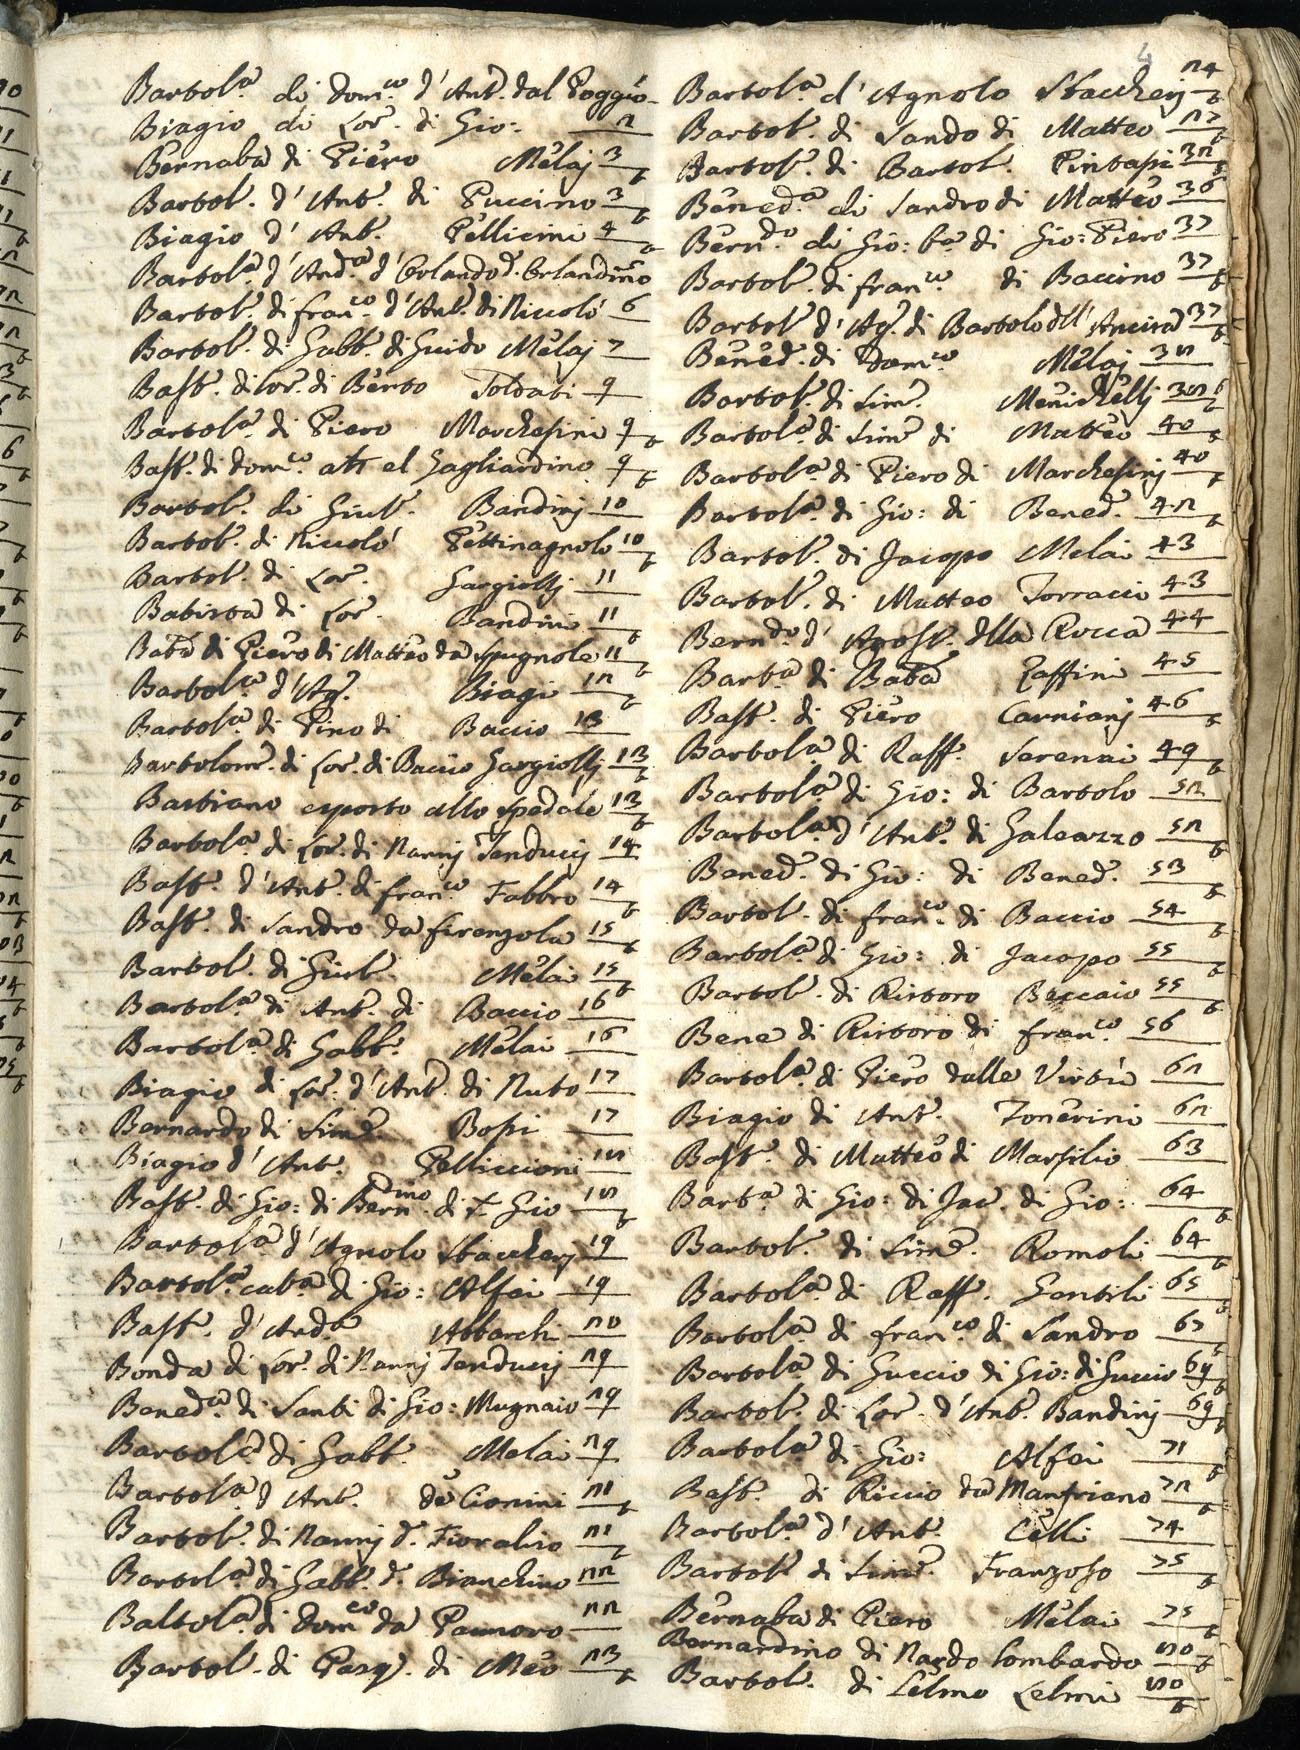 4
Bartol.ª di Dom.co d'Ant. dal Poggio
Biagio di Lor. di Gio: 2
Bernaba di Piero Melaj 3 t
Bartol. d'Ant. di Puccino 3 t
Biagio d'Ant. Pellicini 4 t
Bartol.ª d'And.ª d'Orlando d. Orlandino
Bartol. di Fran.co d'Ant. di Niccolò 6
Bartol. di Gabb. di Guido Melaj 7
Bast. di Lor. di Berto Soldati 9
Bartol.ª di Piero Marchesini 9 t
Bast. di Dom.co el Gagliardino 9 t
Bartol. di Giul. Bandinj 10
Bartol. di Niccolò Pettinagnolo 10 t
Bartol. di Lor. Gargiollj 11
Babista di Lor. Bandini 11 t
Bab.ª di Piero di Matteo da Spugnole 11 t
Bartol.ª d'Ag. Biagi 12 t
Bartol.ª di Pino di Baccio 13
Bartolom. di Lor. di Baccio Gargiollj 13 t
Bastiano esposto allo Spedale 13 t
Bartol.ª di Lor. di Nannj Tenducij 14
Bast. d'Ant. di Fran.co Fabbro 14 t
Bast. di Sandro da Firenzola 15 t
Bartol. di Giul. Melai 15 t
Bartol.ª di Ant. di Baccio 16
Bartol.ª di Gabb. Melai 16
Biagio di Lor. d'Ant. di Nuto 17
Bernardo di Sim. Bosi 17
Biagio d'Ant. Pelliccioni 18
Bast. di Gio: di Bern.ino di S. Gio 18 t
Bartol.ª d'Agnolo Staccherj 19
Bartol.ª cub.ª di Gio: Alfei 19
Bast. d'And.ª Abbarchi 20
Bonda di Lor. di Nannj Tenducij 29
Bened.ª di Santi di Gio: Mugnaio 29
Bartol.ª di Gabb. Melai 29
Bartol.ª d'Ant. de Cionini 21 t
Bartol. di Nannj d. Fioralio 21 t
Bartol.ª di Gabb. d. Bianchino 22
Baltol.ª di Dom.co da Pannoro 22
Bartol. di Pasq. di Meo 23 t
Bartol.ª d'Agnolo Staccherj 24 t
Bartol. di Sando di Matteo 27 t
Bartol. di Bartol. Pintasi 32 t
Bened.ª di Sandro di Matteo 36 t
Bern.do di Gio: b.ª di Gio: Piero 37
Bartol. di Fran.co di Baccino 37 t
Bartol. d'Ag. di Bartolo dll' Ancisa 37 t
Bened. di Dom.co Melaj 38
Bartol. di Sim. Menichellj 38 t
Bartol.ª di Sim. di Matteo 40 t
Bartol.ª di Piero di Marchesinj 40 t
Bartol.ª di Gio: di Bened. 42 t
Bartol. di Jacopo Melai 43
Bartol. di Matteo Torracci 43
Bern.do d'Agost. dlla Rocca 44
Bart.ª di Bab.ª Zaffini 45
Bast. di Piero Carnianj 46 t
Bartol.ª di Raff. Serenai 49 t
Bartol.ª di Gio: di Bartolo 52
Bartol.ª d'Ant. di Galeazzo 52 t
Bened. di Gio: di Bened. 53 t
Bartol. di Fran.co di Baccio 54 t
Bartol.ª di Gio: di Jacopo 55 t
Bartol. di Ristoro Beccaio 55 t
Bene di Ristoro di Fran.co 56
Bartol.ª di Piero dalle Virtù 62
Biagio di Ant. Tonerini 62
Bast. di Matteo di Marsilio 63
Bart.ª di Gio: di Jac. di Gio: 64 t
Bartol. di Sim. Romoli 64 t
Bartol.ª di Raff. Gentili 65 t
Bartol.ª di Fran.co di Sandro 67 t
Bartol.ª di Guccio di Gio: di Guccio 69 t
Bartol. di Lor. d'Ant. Bandinj 69 t
Bartol.ª di Gio: Alfei 71 t
Bast. di Riccio da Manfriano 72 t
Bartol.ª d'Ant. Celli 74
Bartol. di Sim. Franzoso 75 t
Bernaba di Piero Melai 75 t
Bernardino di Nardo Lombardo 80 t
Bartol. di Lelmo Lelmi 80 t